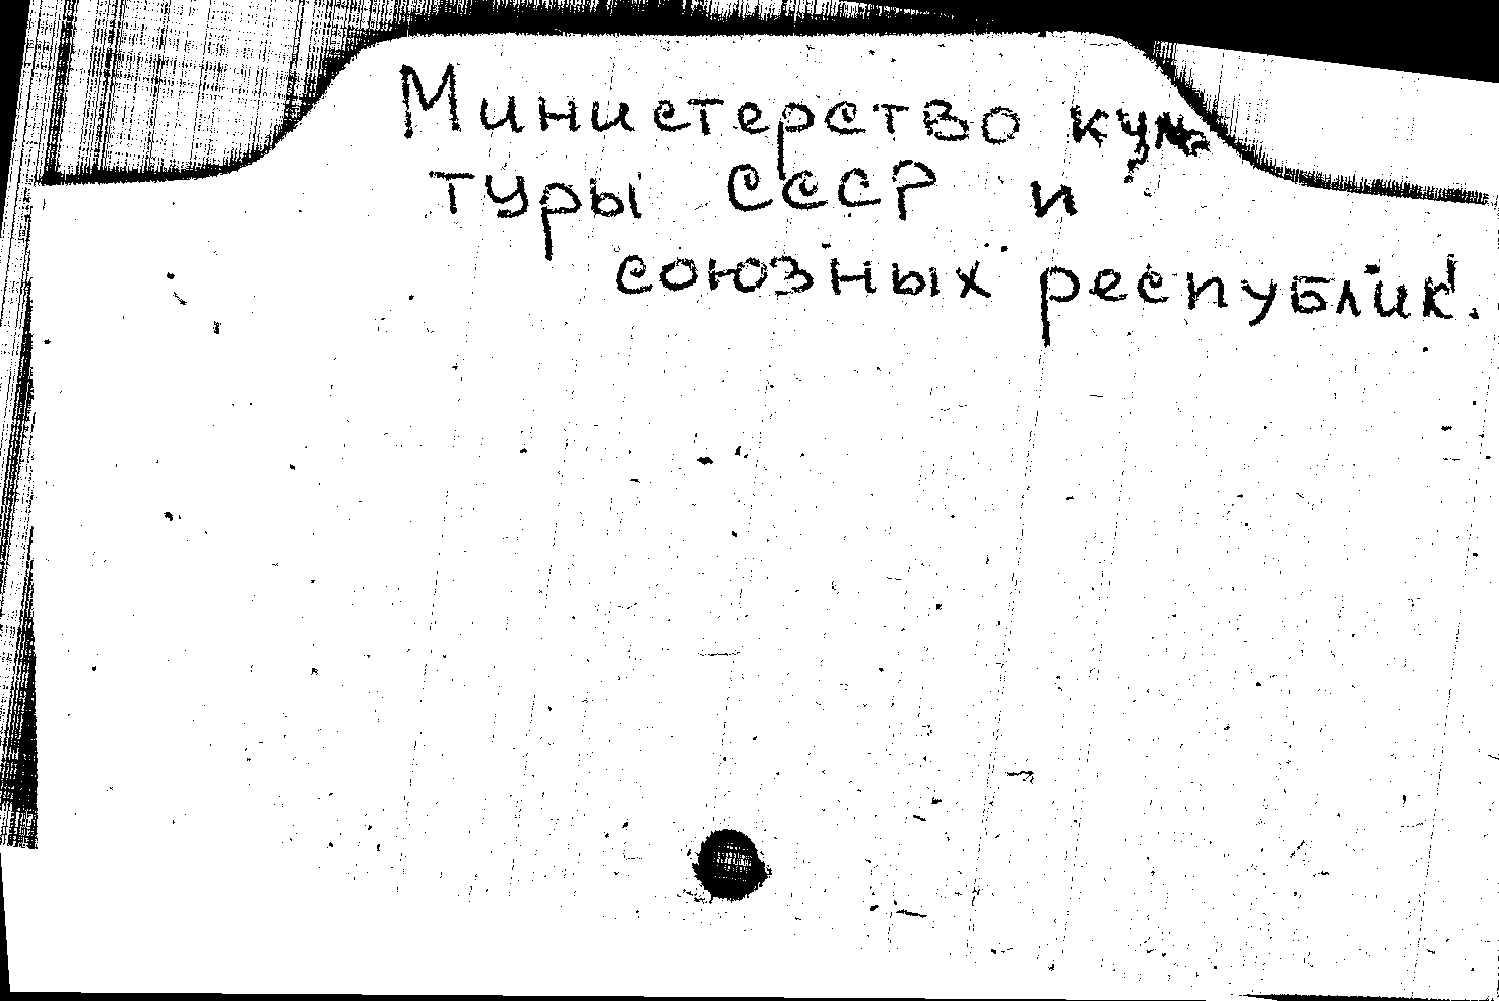 Министерство куль
туры СССР и
союзных республик.